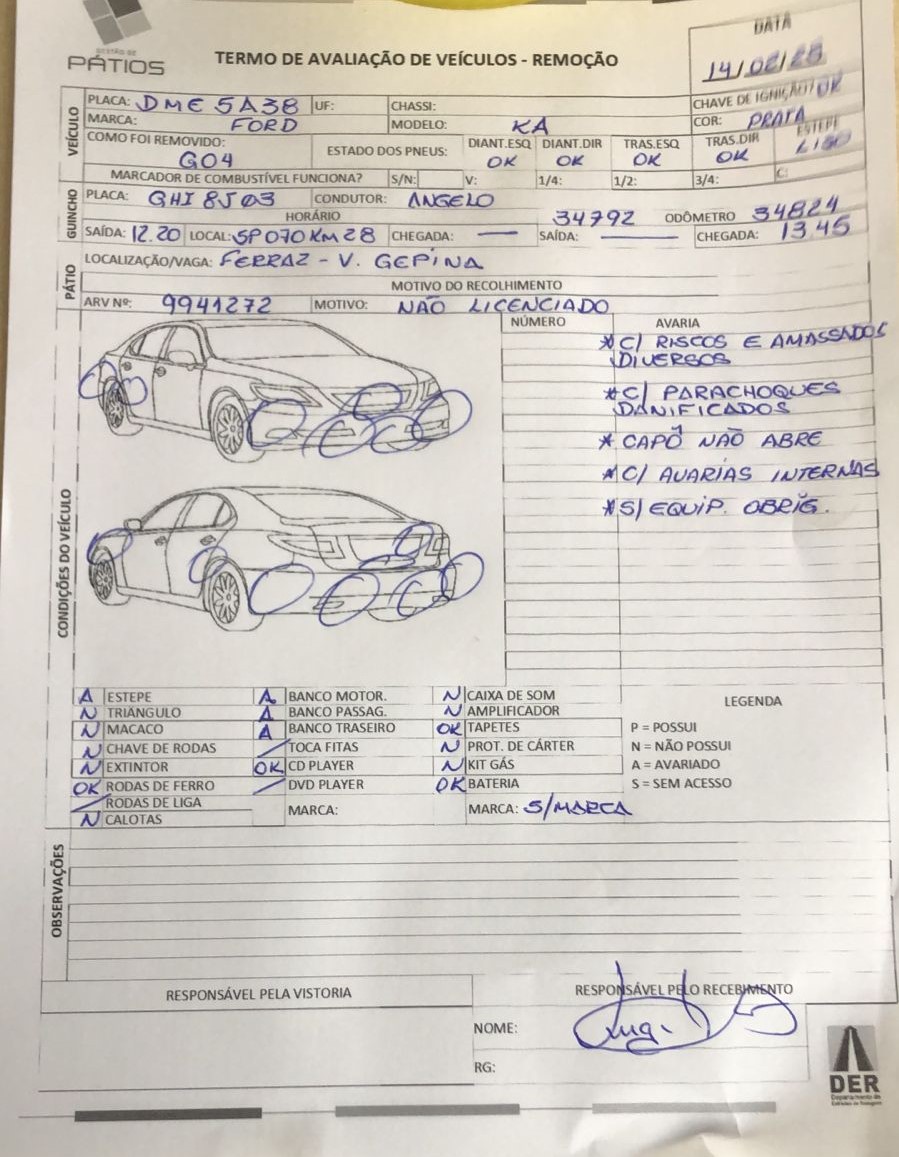 GESTÃO DE
PÁTIOS
TERMO DE AVALIAÇÃO DE VEÍCULOS - REMOÇÃO
DATA
VEÍCULO
PLACA: DME 5A38 UF: CHASSI: CHAVE DE IGNIÇÃO: OK
MARCA: FORD MODELO: KA COR: PRATA
COMO FOI REMOVIDO: GO4 ESTADO DOS PNEUS: DIANT.ESQ OK DIANT.DIR OK TRAS.ESQ OK TRAS.DIR OK ESTEPE LISO
MARCADOR DE COMBUSTÍVEL FUNCIONA? S/N: V: 1/4: 1/2: 3/4: C:
GUINCHO
PLACA: GHI 8J03 CONDUTOR: ANGELO
HORÁRIO 34792 ODÔMETRO 34824
SAÍDA: 12.20 LOCAL: SP070 KM 28 CHEGADA: — SAÍDA: — CHEGADA: 13.45
PÁTIO
LOCALIZAÇÃO/VAGA: FERRAZ - V. GEPINA
MOTIVO DO RECOLHIMENTO
ARV Nº: 9941272 MOTIVO: NÃO LICENCIADO
CONDIÇÕES DO VEÍCULO
NÚMERO AVARIA
* C/ RISCOS E AMASSADOS
DIVERSOS
* C/ PARACHOQUES
DANIFICADOS
* CAPÔ NÃO ABRE
* C/ AVARIAS INTERNAS
* S/ EQUIP. OBRIG.
A ESTEPE A BANCO MOTOR. N CAIXA DE SOM LEGENDA
N TRIÂNGULO A BANCO PASSAG. N AMPLIFICADOR
N MACACO A BANCO TRASEIRO OK TAPETES P = POSSUI
N CHAVE DE RODAS / TOCA FITAS N PROT. DE CÁRTER N = NÃO POSSUI
N EXTINTOR OK CD PLAYER N KIT GÁS A = AVARIADO
OK RODAS DE FERRO / DVD PLAYER OK BATERIA S = SEM ACESSO
/ RODAS DE LIGA MARCA: MARCA: S/MARCA
N CALOTAS
OBSERVAÇÕES
RESPONSÁVEL PELA VISTORIA RESPONSÁVEL PELO RECEBIMENTO
NOME:
RG:
DER
Departamento de
Estradas de Rodagem